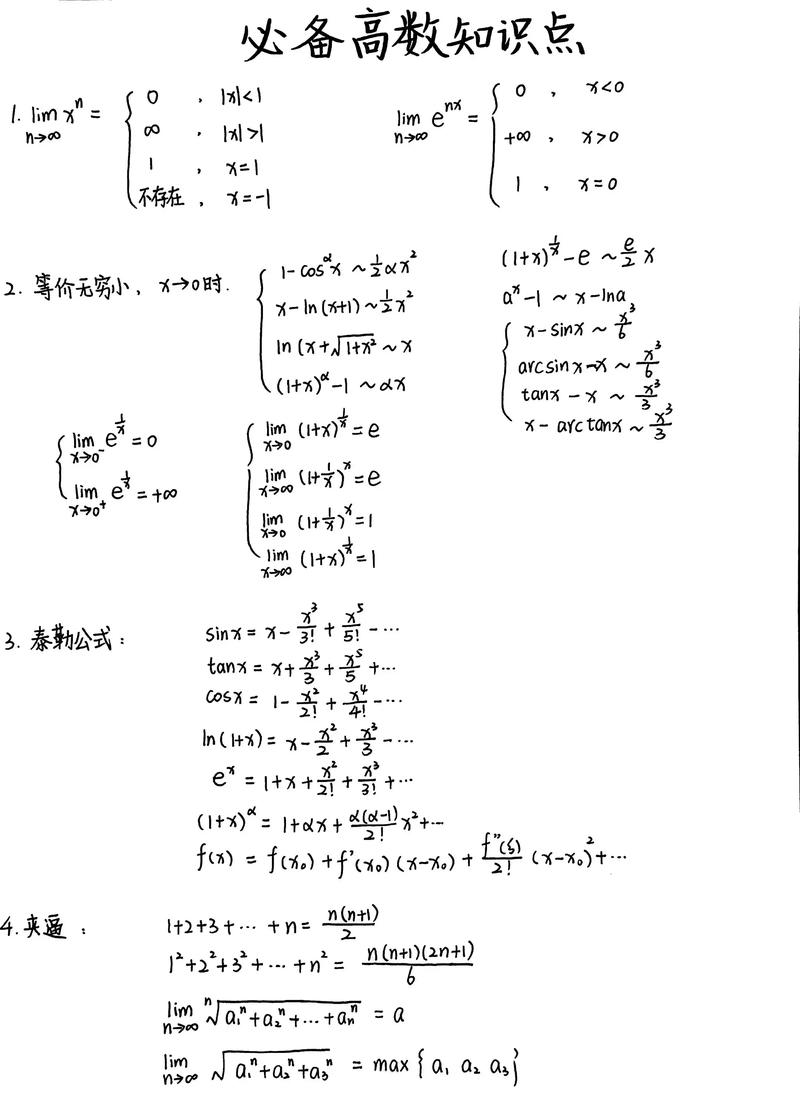 必备高数知识点
1. lim n→∞ xⁿ = { 0 , |x|<1
∞ , |x|>1
1 , x=1
不存在 , x=-1
lim n→∞ e^(nx) = { 0 , x<0
+∞ , x>0
1 , x=0
2. 等价无穷小, x→0时.
1-cos^α x ~ 1/2 αx²
x-ln(x+1) ~ 1/2 x²
ln(x+√(1+x²) ~ x
(1+x)^α -1 ~ αx
(1+x)^(1/x) - e ~ e/2 x
aˣ-1 ~ x-lna
x-sinx ~ x³/6
arcsinx-x ~ x³/6
tanx-x ~ x³/3
x-arctanx ~ x³/3
lim x→0⁻ e^(1/x) = 0
lim x→0⁺ e^(1/x) = +∞
lim x→0 (1+x)^(1/x) = e
lim x→∞ (1+1/x)ˣ = e
lim x→0 (1+1/x)ˣ = 1
lim x→∞ (1+x)^(1/x) = 1
3. 泰勒公式:
sinx = x - x³/3! + x⁵/5! - ···
tanx = x + x³/3 + x⁵/5 + ···
cosx = 1 - x²/2! + x⁴/4! - ···
ln(1+x) = x - x²/2 + x³/3 - ···
eˣ = 1+x+ x²/2! + x³/3! + ···
(1+x)^α = 1+αx+ α(α-1)/2! x²+···
f(x) = f(x₀)+f'(x₀)(x-x₀) + f''(ξ)/2! (x-x₀)²+···
4. 夹逼 :
1+2+3+ ··· +n = n(n+1)/2
1²+2²+3²+ ··· +n² = n(n+1)(2n+1)/6
lim n→∞ ⁿ√(a₁ⁿ+a₂ⁿ+···+aₙⁿ) = a
lim n→∞ √(a₁ⁿ+a₂ⁿ+a₃ⁿ) = max{a₁ a₂ a₃}